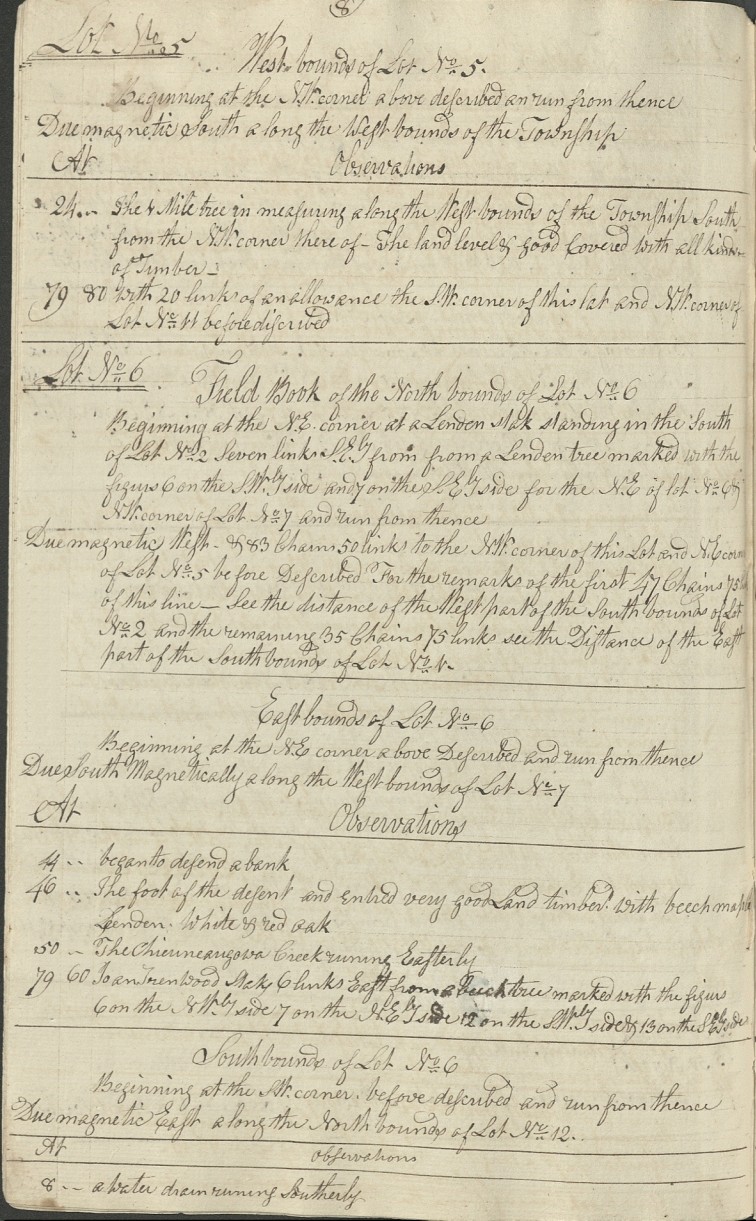 8
Lot No. 5
West bounds of Lot No. 5.
Beginning at the N.W. corner above described an run from thence
Due magnetic South along the West bounds of the Township
At Observations
24 .. The 4 Mile tree in measuring along the West bounds of the Township South
from the N.W. corner there of - The land level & good Covered with all kinds
of Timber -
79 80 With 20 links of an allowance the S.W. corner of this lot and N.W. corner of
Lot No. 11 before discribed
Lot No. 6
Field Book of the North bounds of Lot No. 6
Beginning at the N.E. corner at a Lenden stak standing in the South
of Lot No. 2 Seven links S.E.ly from from a Lenden tree marked with the
figurs 6 on the S.W.ly side and 7 on the S.E.ly side for the N.E. of lot No. 6 &
N.W. corner of Lot No. 7 and run from thence
Due magnetic West - & 83 Chains 50 links to the N.W. corner of this Lot and N.E. corn
of Lot No. 5 before Described For the remarks of the first 47 Chains 75
of this line - See the distance of the West part of the South bounds of Lot
No. 2 and the remaining 35 Chains 75 links see the Distance of the East
part of the South bounds of Lot No. 1.
East bounds of Lot No. 6
Beginning at the N.E. corner above Described and run from thence
Due South Magnetically along the West bounds of Lot No. 7
At Observations
44 .. began to desend a bank
46 .. The foot of the desent and entred very good Land timber.d with beech maple
Lenden. White & red oak
50 .. The Creek runing Easterly
79 60 To an Irenwood Stak 6 links East from a beech tree marked with the figurs
6 on the N.W.ly side 7 on the N.E.ly side 12 on the S.W.ly side & 13 on the S.E.ly side
South bounds of Lot No. 6
Beginning at the S.W. corner. before described and run from thence
Due magnetic East along the North bounds of Lot No. 12..
At observations
8 .. a water drain runing Southerly